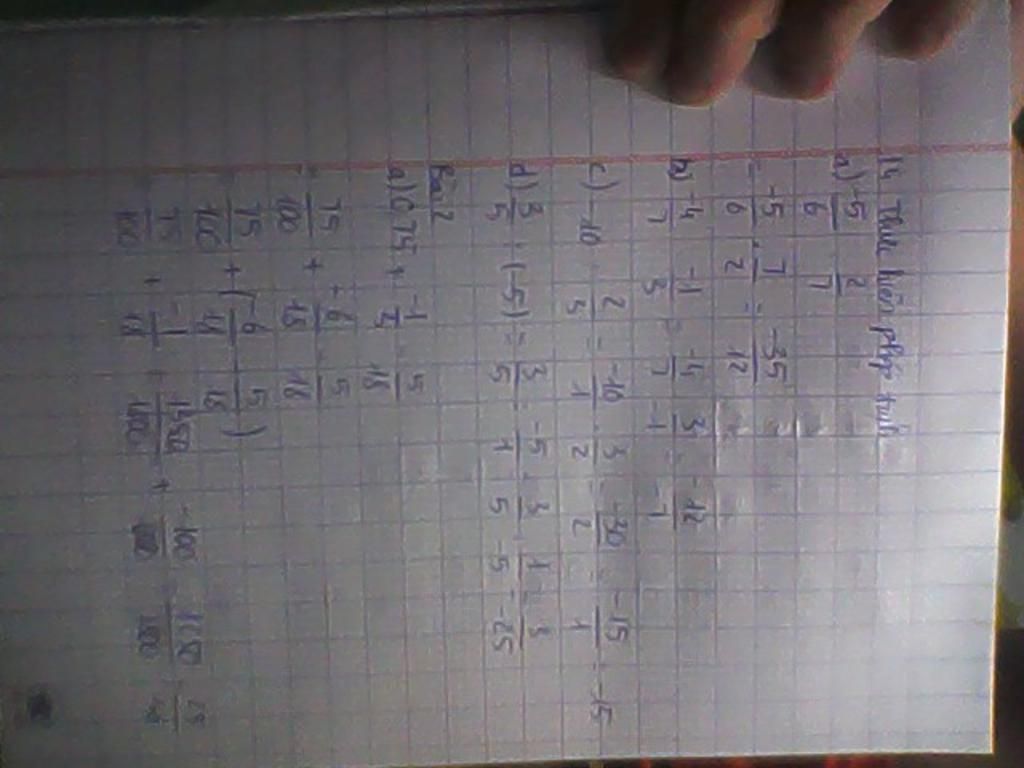 1.4 Thực hiện phép tính
a) -5/6 : 2/7
= -5/6 . 7/2 = -35/12
b) -4/7 : -1/3 = -4/7 . 3/-1 = -12/-7
c) -10 : 2/3 = -10/1 . 3/2 = -30/2 = -15/1 = -15
d) 3/5 : (-5) = 3/5 : -5/1 = 3/5 . 1/-5 = 3/-25
Bài 2
a) 0,75 + -1/3 - 5/18
= 75/100 + -6/18 5/18
75/100 + (-6/18 5/18)
75/100 + -1/18 1350/1800 + -100 1250